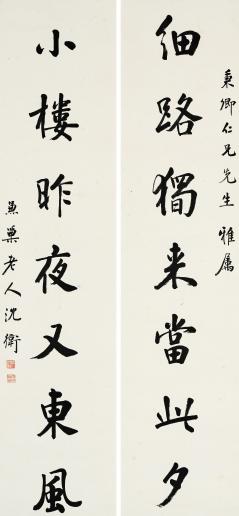 秉卿仁兄先生雅属
细路獨来當此夕
小樓昨夜又東風
魚巢老人沈衛